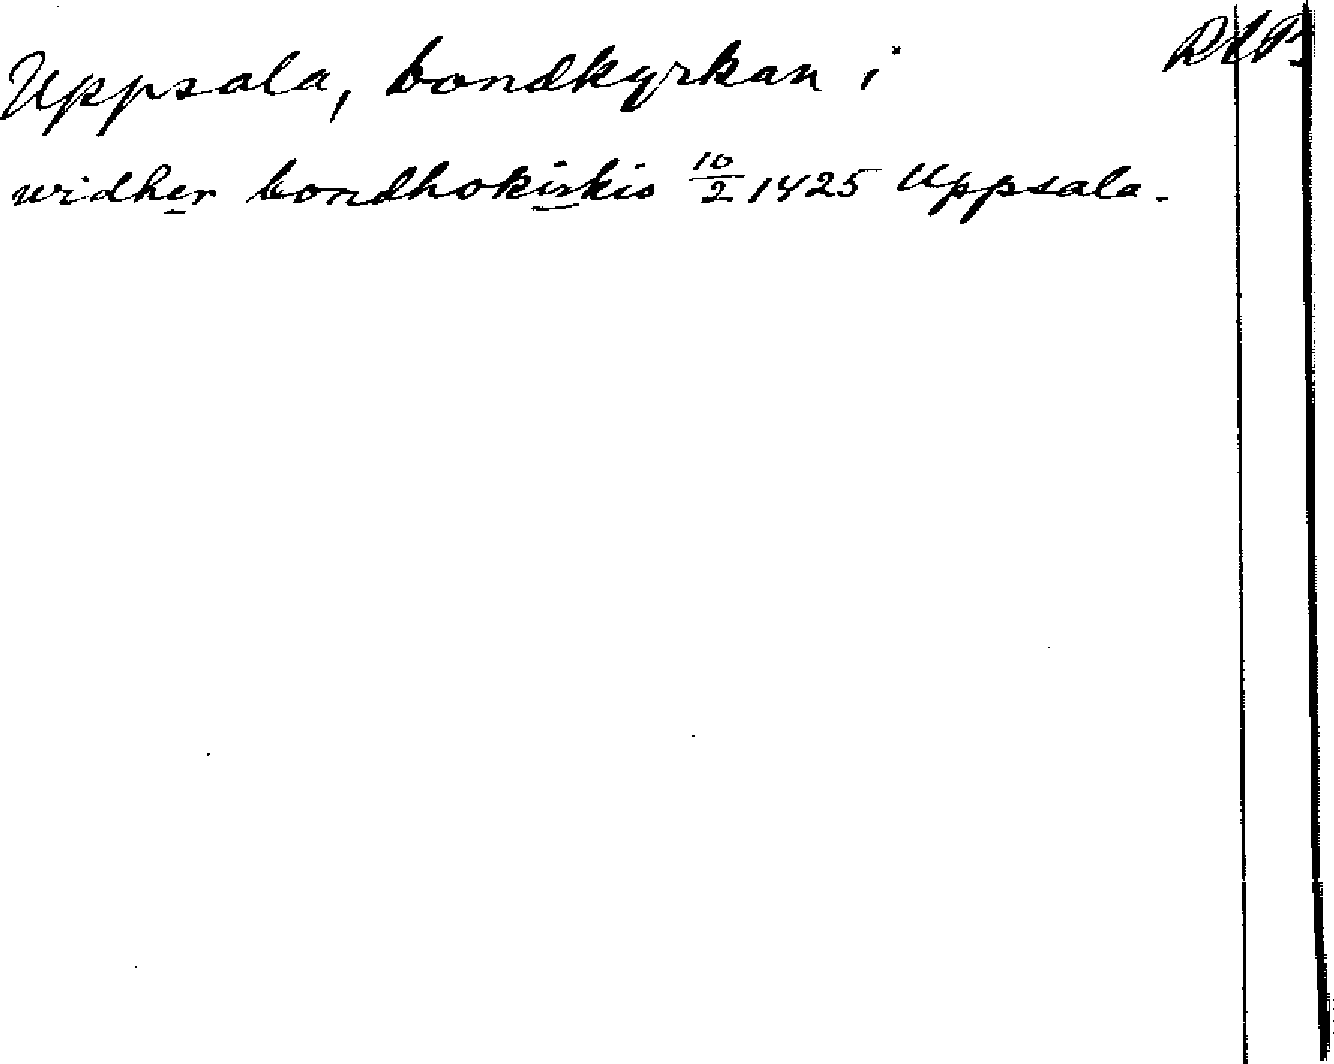 Uppsala, bondkyrkan i
widher bondhokirkio 10/2 1425 Uppsala.